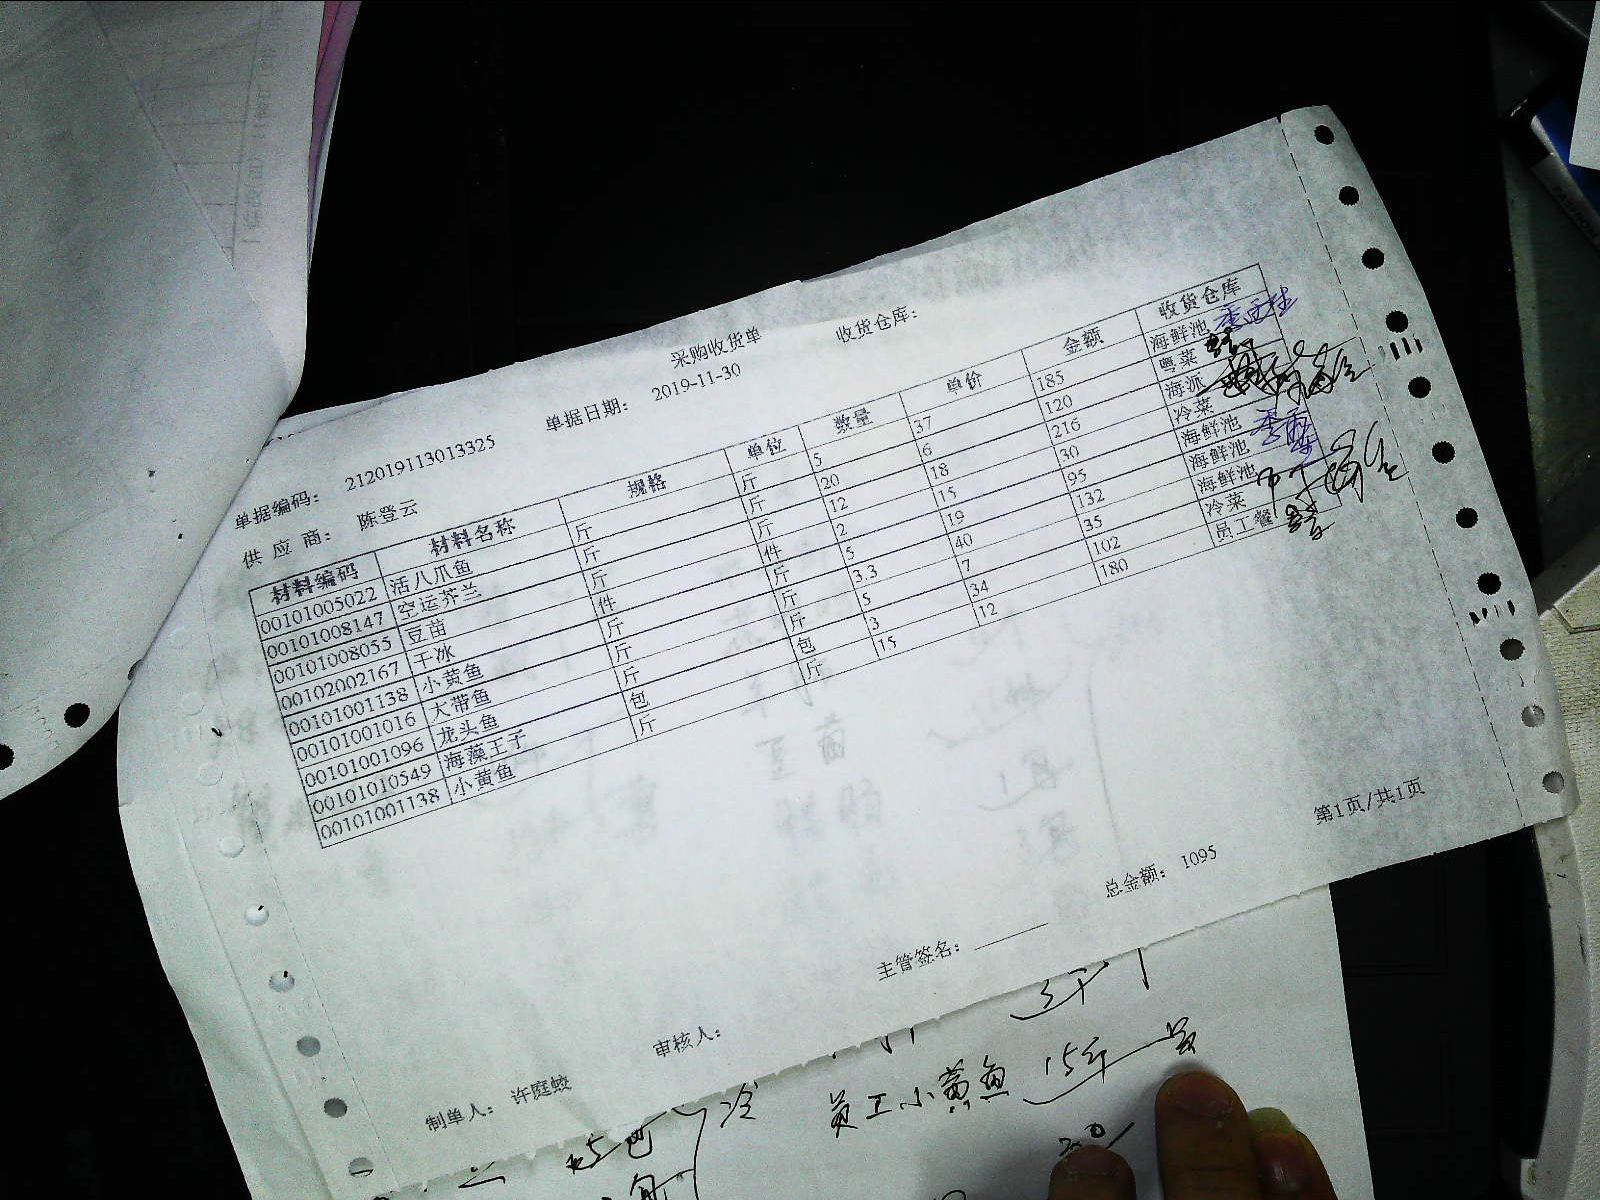 采购收货单 收货仓库：
单据编码： 212019113013325 单据日期： 2019-11-30
供 应 商： 陈登云
材料编码 材料名称 规格 单位 数量 单价 金额 收货仓库
00101005022 活八爪鱼 斤 斤 5 37 185 海鲜池
00101008147 空运芥兰 斤 斤 20 6 120 粤菜
00101008055 豆苗 斤 斤 12 18 216 海派
00102002167 干冰 件 件 2 15 30 冷菜
00101001138 小黄鱼 斤 斤 5 19 95 海鲜池
00101001016 大带鱼 斤 斤 3.3 40 132 海鲜池
00101001096 龙头鱼 斤 斤 5 7 35 海鲜池
00101010549 海藻王子 包 包 3 34 102 冷菜
00101001138 小黄鱼 斤 斤 15 12 180 员工餐
第1页/共1页
总金额： 1095
主管签名：
审核人：
制单人： 许庭蛟
员工小黄鱼 15斤
冷